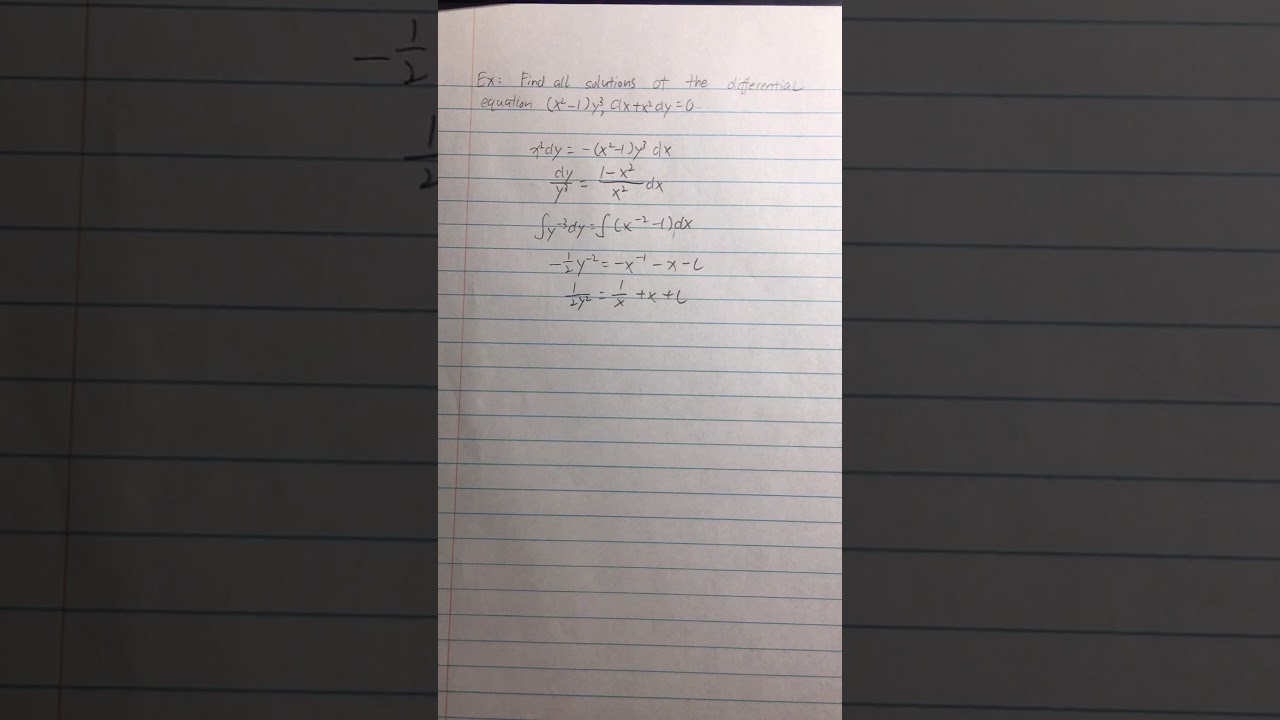 Ex: Find all solutions of the differential
equation (x²-1)y³ dx+x²dy=0
x²dy = -(x²-1)y³ dx
dy/y³ = (1-x²)/x² dx
∫y⁻³dy=∫(x⁻²-1)dx
-1/2 y⁻² = -x⁻¹ - x - C
1/(2y²) = 1/x + x + C
-1/2
1/2